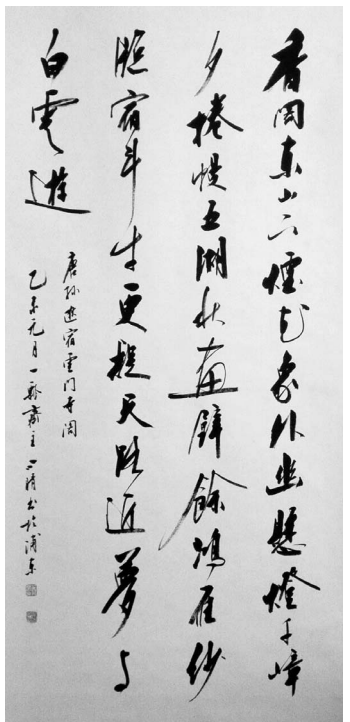 香閣東山下煙花象外幽懸燈千嶂
夕捲幔五湖秋畫壁餘鴻雁紗
牕宿斗牛更疑天路近夢与
白雲遊
唐孫逖宿雲門寺閣
乙未元月一齋主書於浦東